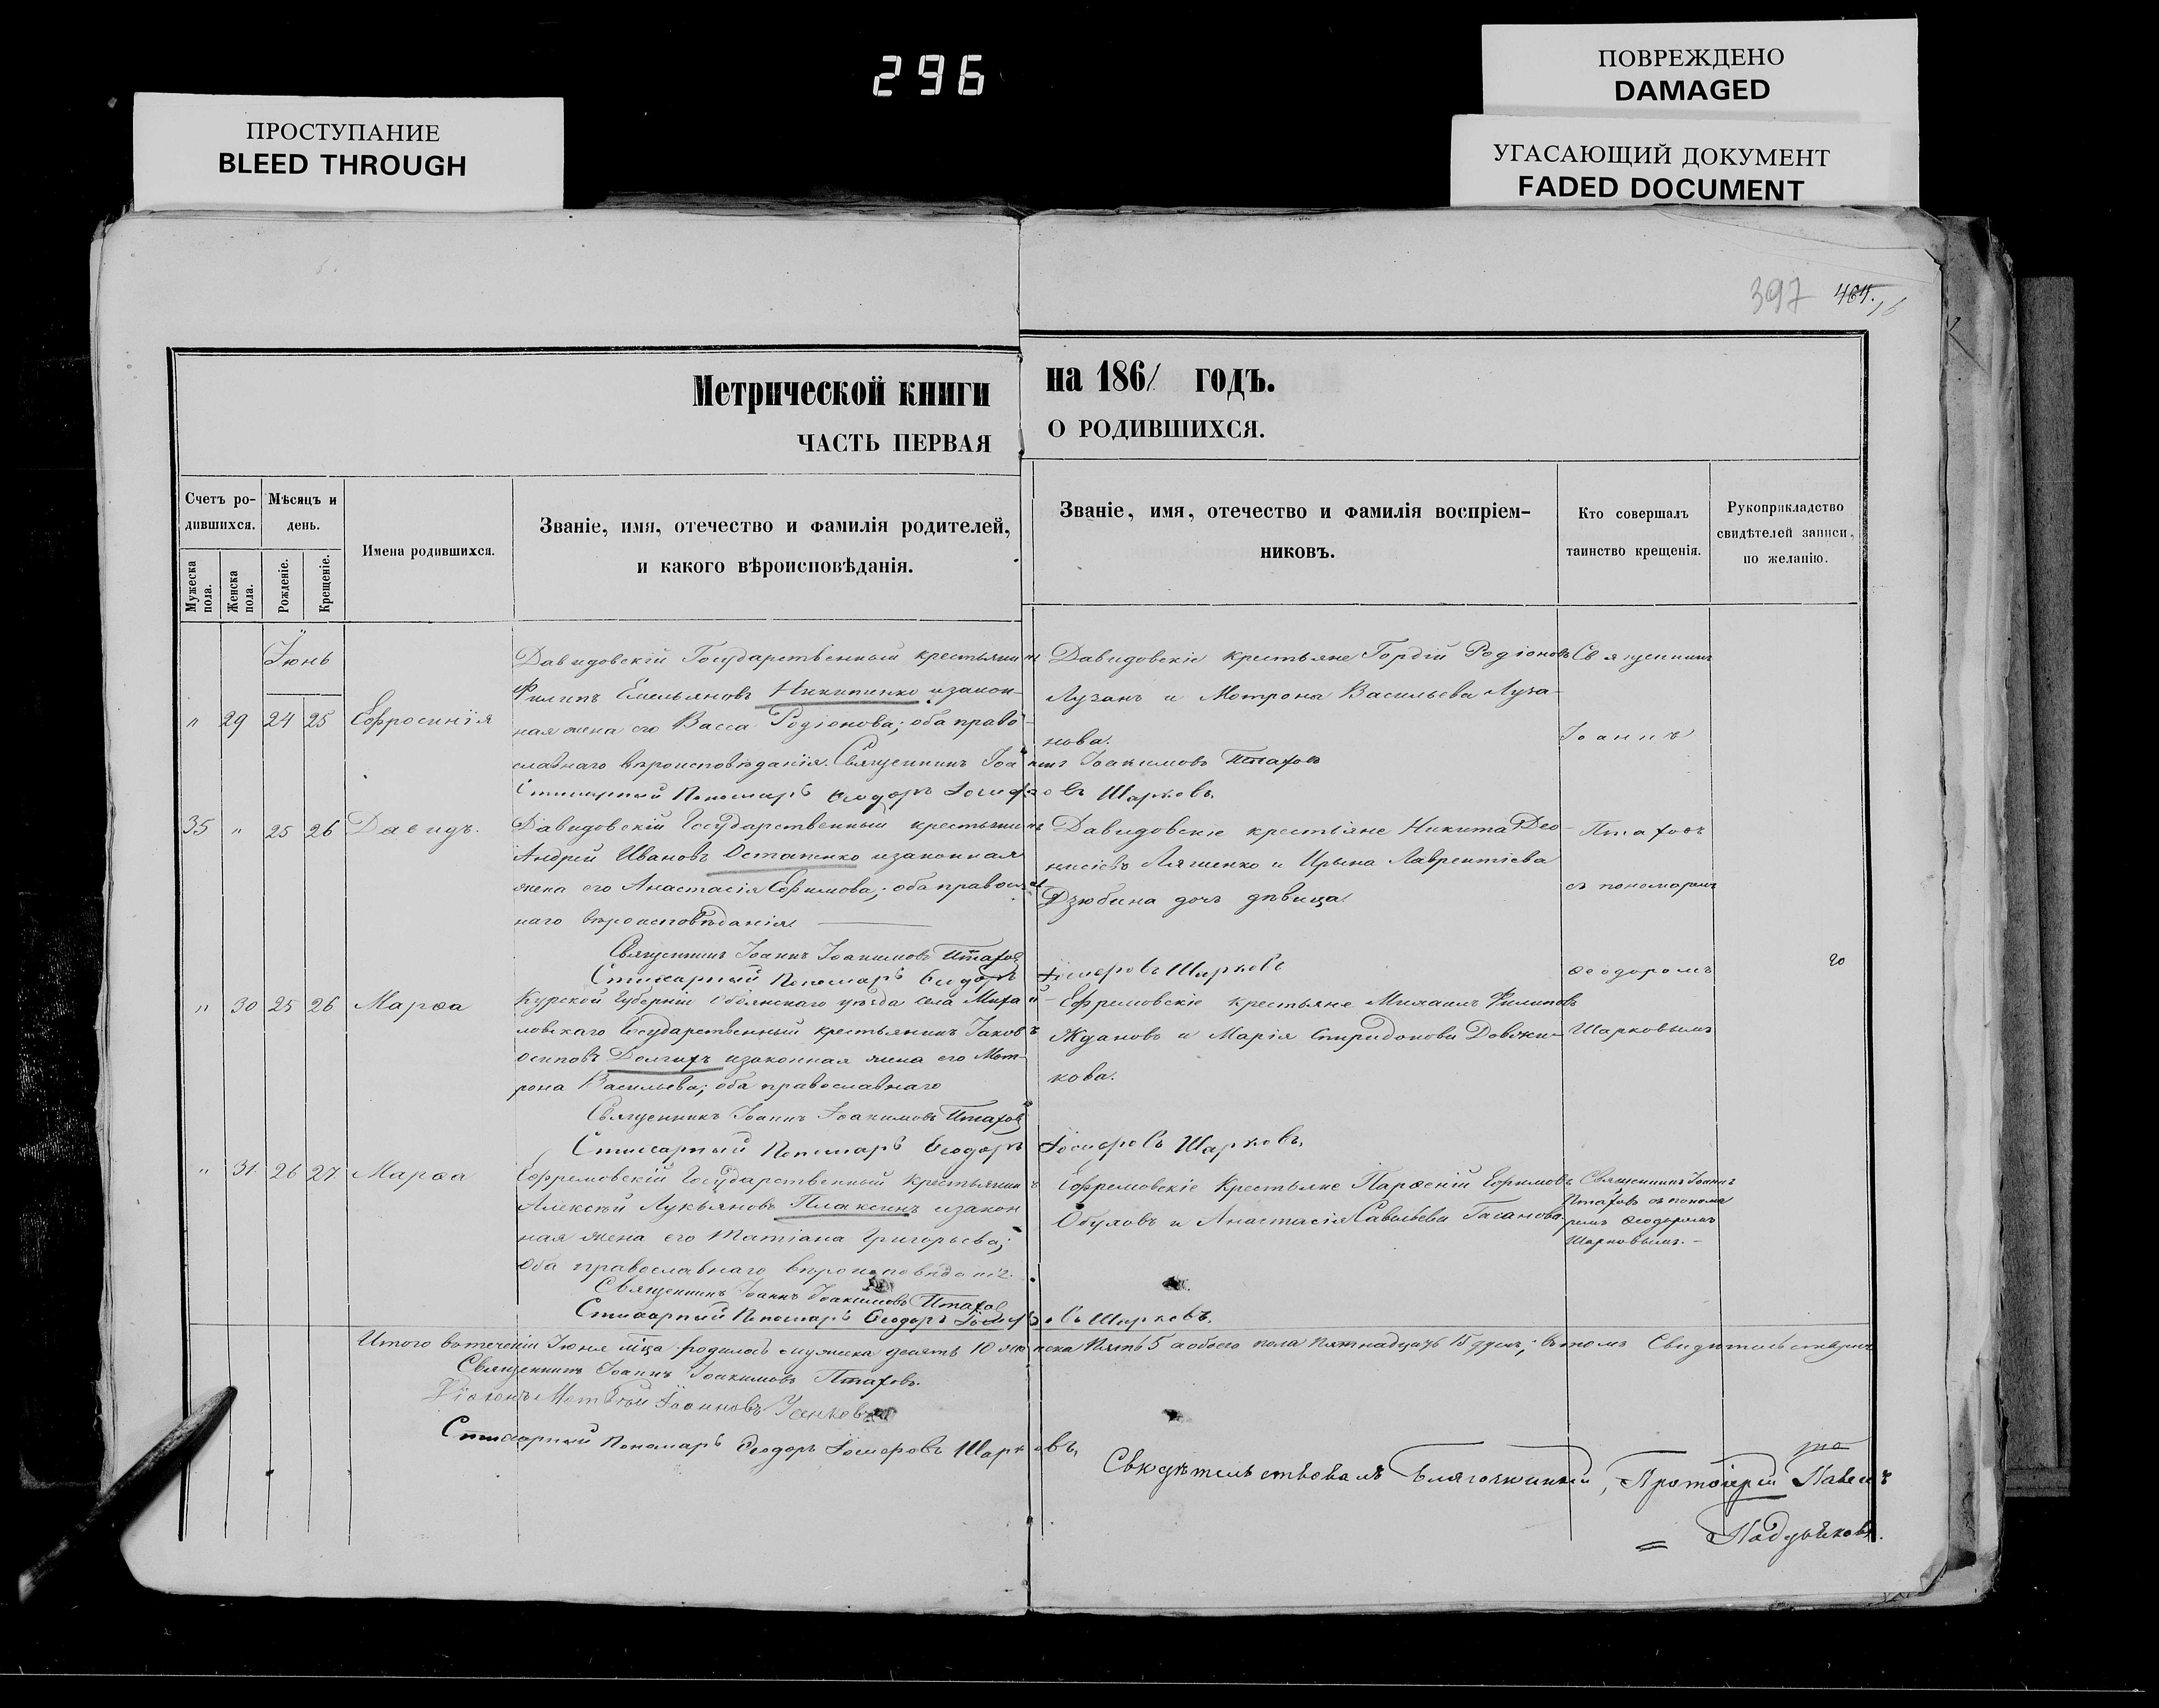 296
ПРОСТУПАНИЕ
BLEED THROUGH
ПОВРЕЖДЕНО
DAMAGED
УГАСАЮЩИЙ ДОКУМЕНТ
FADED DOCUMENT
397
Метрической книги на 1861 годъ.
ЧАСТЬ ПЕРВАЯ О РОДИВШИХСЯ.
Счетъ ро-
дившихся.
Мужеска пола.
Женска пола.
Мѣсяцъ и
день.
Рожденіе.
Крещеніе.
Имена родившихся.
Званіе, имя, отечество и фамилія родителей,
и какого вѣроисповѣданія.
Званіе, имя, отечество и фамилія воспріем-
никовъ.
Кто совершалъ
таинство крещенія.
Рукоприкладство
свидѣтелей записи,
по желанію.
Іюнь
" 29 24 25 Ефросинія
Давидовскій Государственный крестьянинъ
Филипъ Емельяновъ Никитенко и закон-
ная жена его Васса Родіонова; оба право-
славнаго вѣроисповѣданія. Священникъ Іоаннъ Іоакимовъ Птаховъ
Стихарный Пономарь Ѳеодоръ Іосифовъ Шарковъ.
Давидовскіе крестьяне Гордій Родіоновъ
Лузанъ и Мотрона Васильева Луза-
нова.
Священникъ
Іоаннъ
35 " 25 26 Давидъ.
Давидовскій Государственный крестьянинъ
Андрей Ивановъ Остапенко и законная
жена его Анастасія Ефимова; оба правосла-
наго вѣроисповѣданія
Священникъ Іоаннъ Іоакимовъ Птаховъ
Стихарный Пономарь Ѳеодоръ Іосифовъ Шарковъ
Давидовскіе крестьяне Никита Део-
нисіевъ Ляшенко и Ирына Лаврентіева
Дзюбина дочь дѣвица
Птаховъ
съ пономаремъ
Ѳеодоромъ
" 30 25 26 Марѳа
Курской Губерніи Обоянскаго уѣзда села Михай-
ловскаго Государственный крестьянинъ Іаковъ
осиповъ Долгихъ и законная жена его Мот-
рона Васильева; оба православнаго
Священникъ Іоаннъ Іоакимовъ Птаховъ
Стихарный Пономарь Ѳеодоръ Іосифовъ Шарковъ.
Ефремовскіе крестьяне Михаилъ Филиповъ
Ждановъ и Марія Спиридонова Довжи-
кова.
Шарковымъ
" 31 26 27 Марѳа
Ефремовскій Государственный Крестьянинъ
Алексѣй Лукьяновъ Плаксинъ и закон
ная жена его Татіана Григорьева;
Оба православнаго вѣроисповѣданія.
Священникъ Іоаннъ Іоакимовъ Птаховъ
Стихарный Пономарь Ѳеодоръ Іосифовъ Шарковъ.
Ефремовскіе Крестьяне Парѳеній Ефимовъ
Обуховъ и Анастасія Савельева
Священникъ Іоаннъ
Птаховъ съ понома
ремъ Ѳеодоромъ
Шарковымъ.
Итого въ теченіи Іюня мѣца родилось мужеска десять 10 женска пять 5 а обоего пола пятнадцать 15 душъ; въ томъ Свидѣтельствуемъ
Священникъ Іоаннъ Іоакимовъ Птаховъ.
Діаконъ Матѳей Іоанновъ
Стихарный Пономарь Ѳеодоръ Іосифовъ Шарковъ.
Свидѣтельствовалъ Благочинный, Протоіерей Павелъ